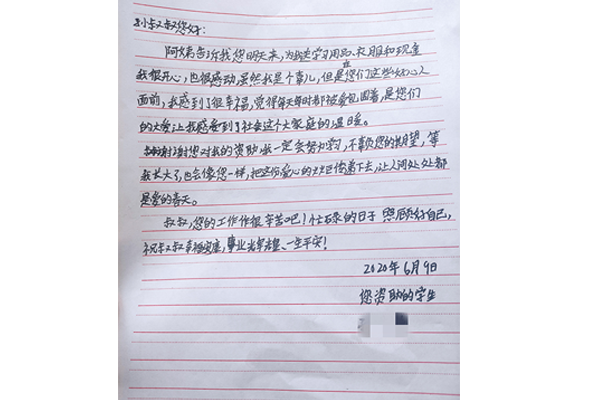 孙叔叔您好:
阿姨告诉我您明天来,为我送学习用品、衣服和现金
我很开心,也很感动,虽然我是个事儿,但是在您们这些好心人
面前,我感到了很幸福,觉得每天每时都被爱包围着,是您们
的大爱让我感受到了社会这个大家庭的温暖。
谢谢您对我的资助我一定会努力学习,不辜负您的期望,等
我长大了,也会像您一样,把这份爱心的火炬传递下去,让人间处处都
是爱的春天。
叔叔,您的工作作很辛苦吧!忙碌的日子照顾好自己,
祝叔叔幸福安康,事业光辉、一生平安!
2020年6月9日
您资助的学生